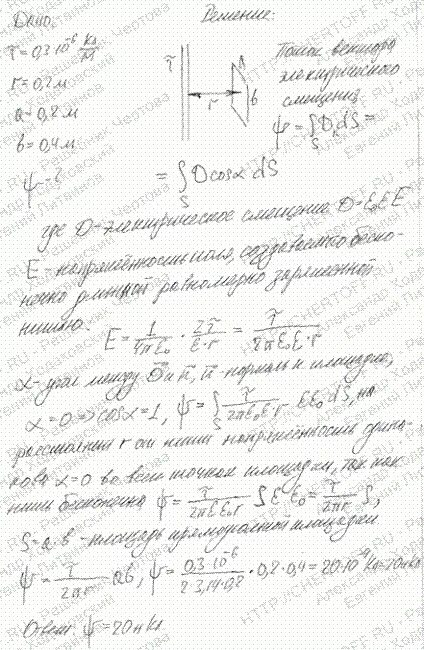 Дано:
Решение:
τ = 0,3·10⁻⁶ Кл/м
r = 0,2 м
a = 0,2 м
b = 0,4 м
ψ - ?
τ
r
a
b
Поток вектора
электрического
смещения
ψ = ∫ D⃗ dS⃗ =
S
= ∫ D cosα dS
S
где D - электрическое смещение D = ε₀ε E
E - напряжённость поля, создаваемого беско-
нечно длинной равномерно заряженной
нитью.
E = 1/(4πε₀) · 2τ/(ε·r) = τ/(2πε₀ε·r)
α - угол между D⃗ и n⃗, n⃗ - нормаль к площадке,
α = 0 => cosα = 1, ψ = ∫ τ/(2πε₀ε·r) εε₀ dS, на
S
расстоянии r от нити напряжённость одина-
кова α = 0 во всех точках площадки, так как
нить бесконечна ψ = τ/(2πεε₀r) S ε ε₀ = τ/(2πr) S,
S = a b - площадь прямоугольной площадки
ψ = τ/(2πr) ab, ψ = 0,3·10⁻⁶/(2·3,14·0,2) · 0,2·0,4 = 20·10⁻⁹ Кл = 20 нКл
Ответ: ψ = 20 нКл
HTTP://CHERTOFF.RU - Решебник Чертова
Александр Ходаковский
Евгений Литвинов